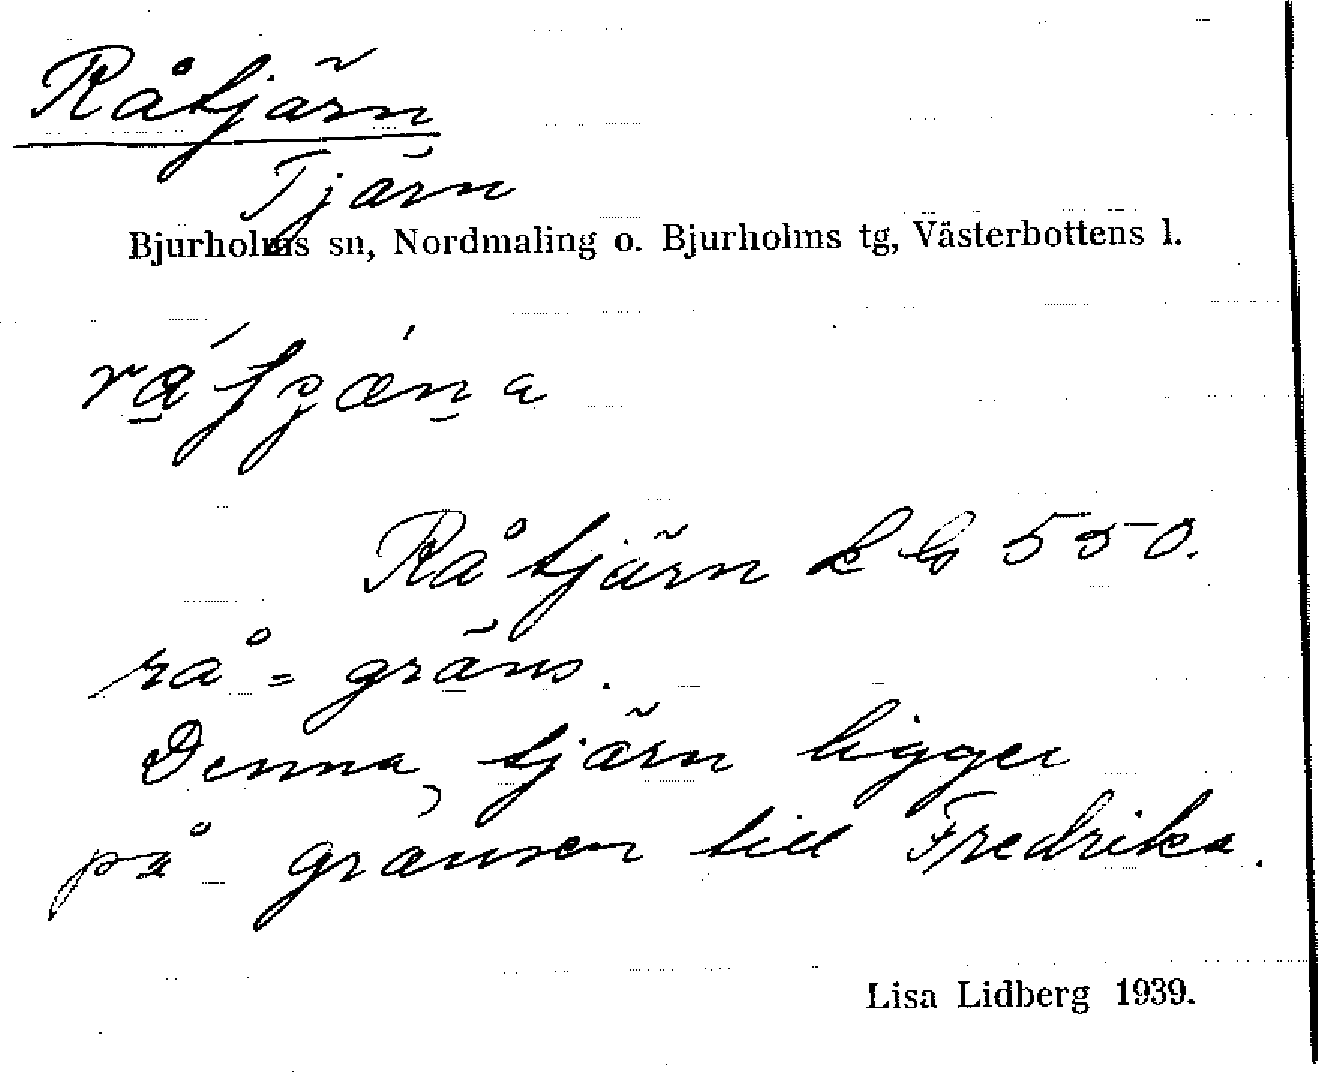 Råtjärn
Tjärn
Bjurholms sn, Nordmaling o. Bjurholms tg, Västerbottens l.
Råtjärn k 550.
rå = gräns.
Denna tjärn ligger
på gränsen till Fredrika.
Lisa Lidberg 1939.